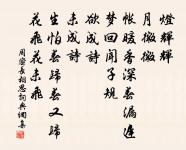 燈輝輝
月微微
帳暖香深春漏遲
夢回聞子規
欲成詩
未成詩
生怕春歸春又歸
花飛花未飛
周密長相思詞典網集